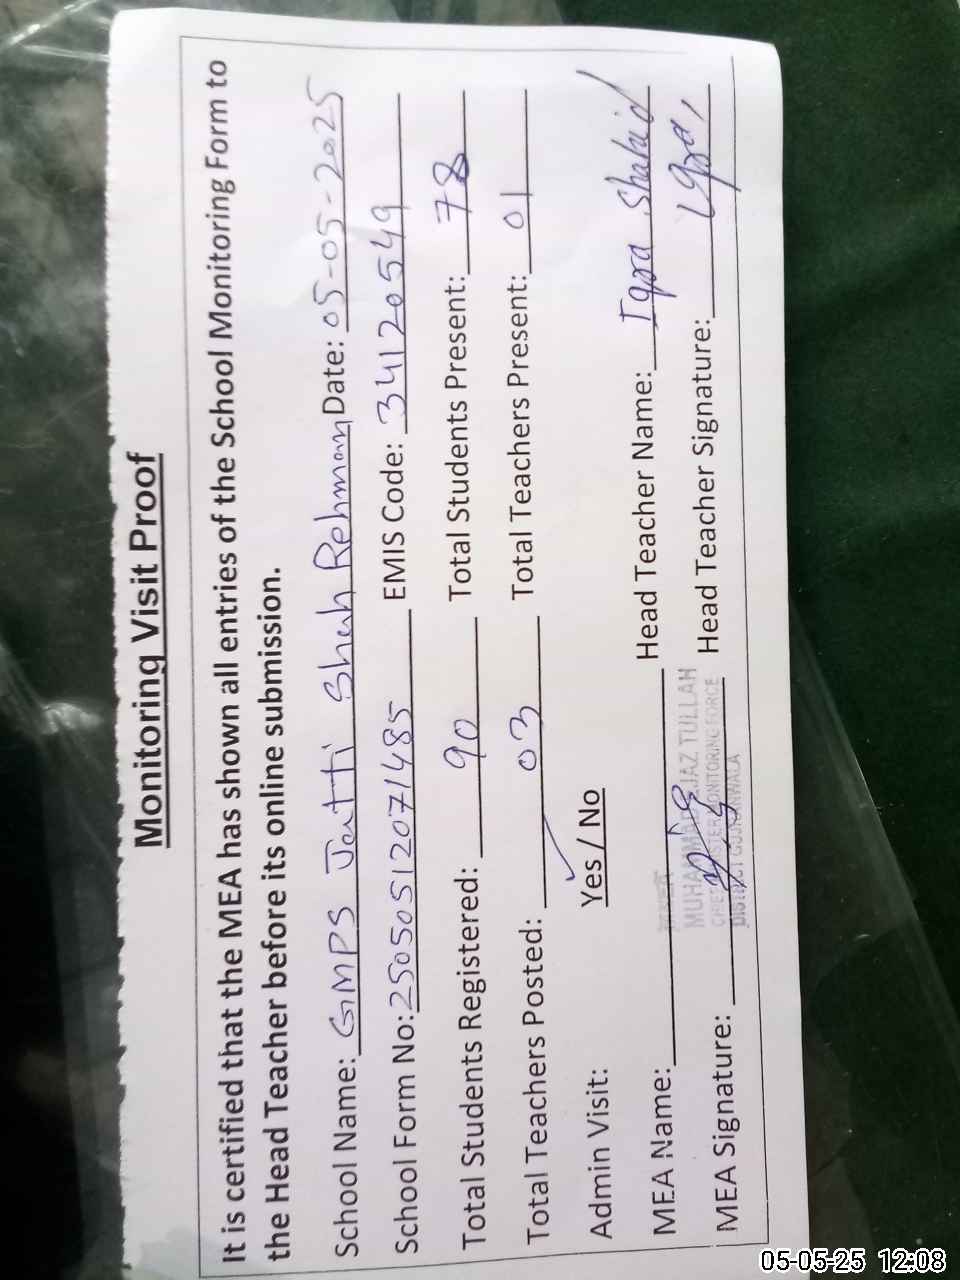 Monitoring Visit Proof
It is certified that the MEA has shown all entries of the School Monitoring Form to
the Head Teacher before its online submission.
School Name: GMPS Jatti Shah Rehman Date: 05-05-2025
School Form No: 25050512071485 EMIS Code: 34120549
Total Students Registered: 90 Total Students Present: 78
Total Teachers Posted: 03 Total Teachers Present: 01
Admin Visit: Yes / No
MEA Name: Head Teacher Name: Iqra Shahid
MUHAMMAD IJAZ TULLAH
CHIEF MINISTER MONITORING FORCE
DISTRICT GUJRANWALA
MEA Signature: Head Teacher Signature: Iqra
05-05-25 12:08